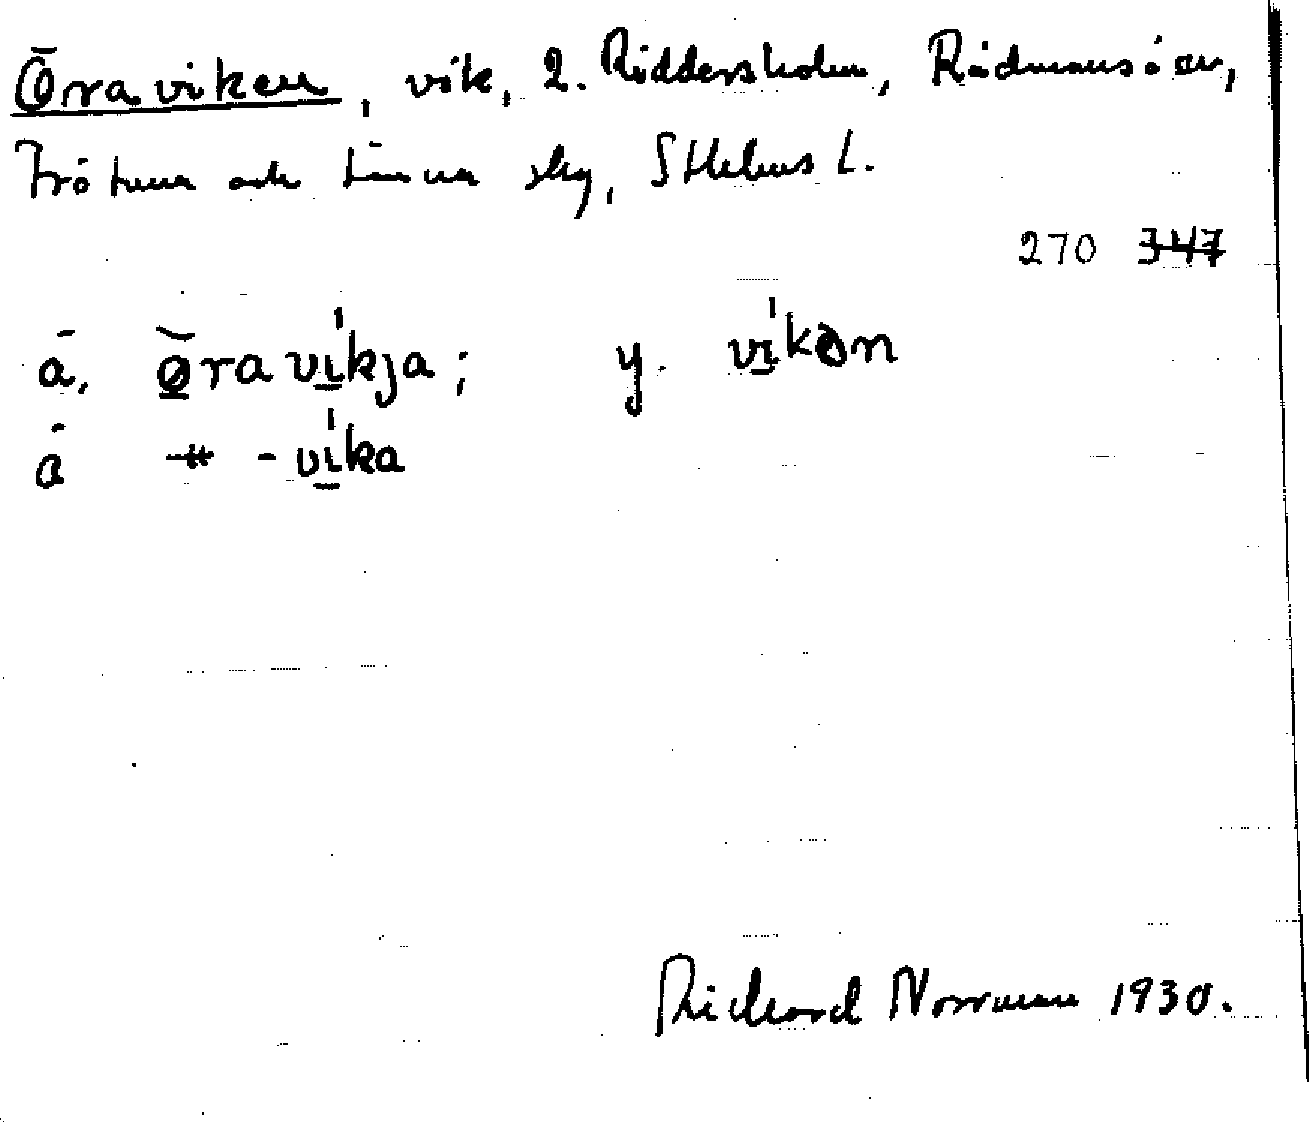 Öraviken, vik, 2. Riddersholm, Rådmansö sn,
Frötuna och Länna skg, Sthlms L.
270 347
ä. øravikja; y. vikən
ä -vika
Richard Norrman 1930.